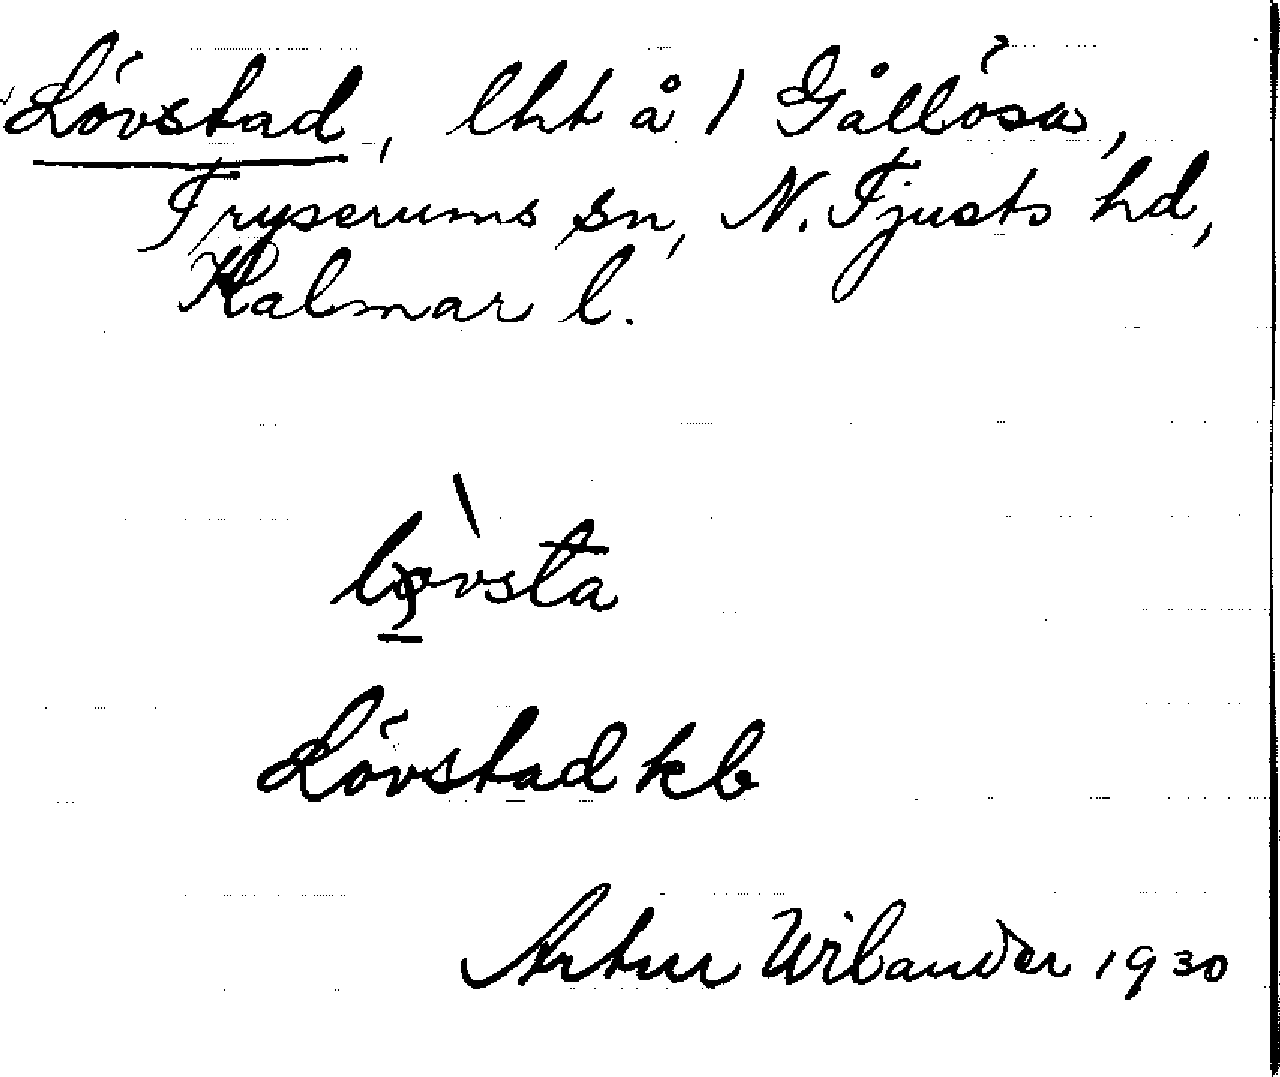 Lövstad, lht å 1 Gållösa,
Tryserums sn, N. Tjusts hd,
Kalmar l.
Lövstad kb
Artur Wilander 1930